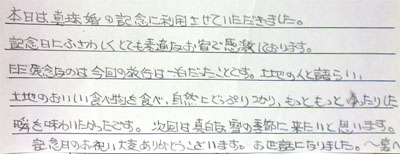 本日は真珠婚の記念に利用させていただきました。
記念日にふさわしくとても素適なお宿で感激しております。
残念なのは今回の旅行は一泊だったことです。土地の人と語らい、
土地のおいしい食べ物を食べ、自然にどっぷりつかり、もっともっとゆったりした
瞬を味わいたかったです。次回は真白な雪の季節に来たいと思います。
記念日のお祝い大変ありがとうございます。お世話になりました。